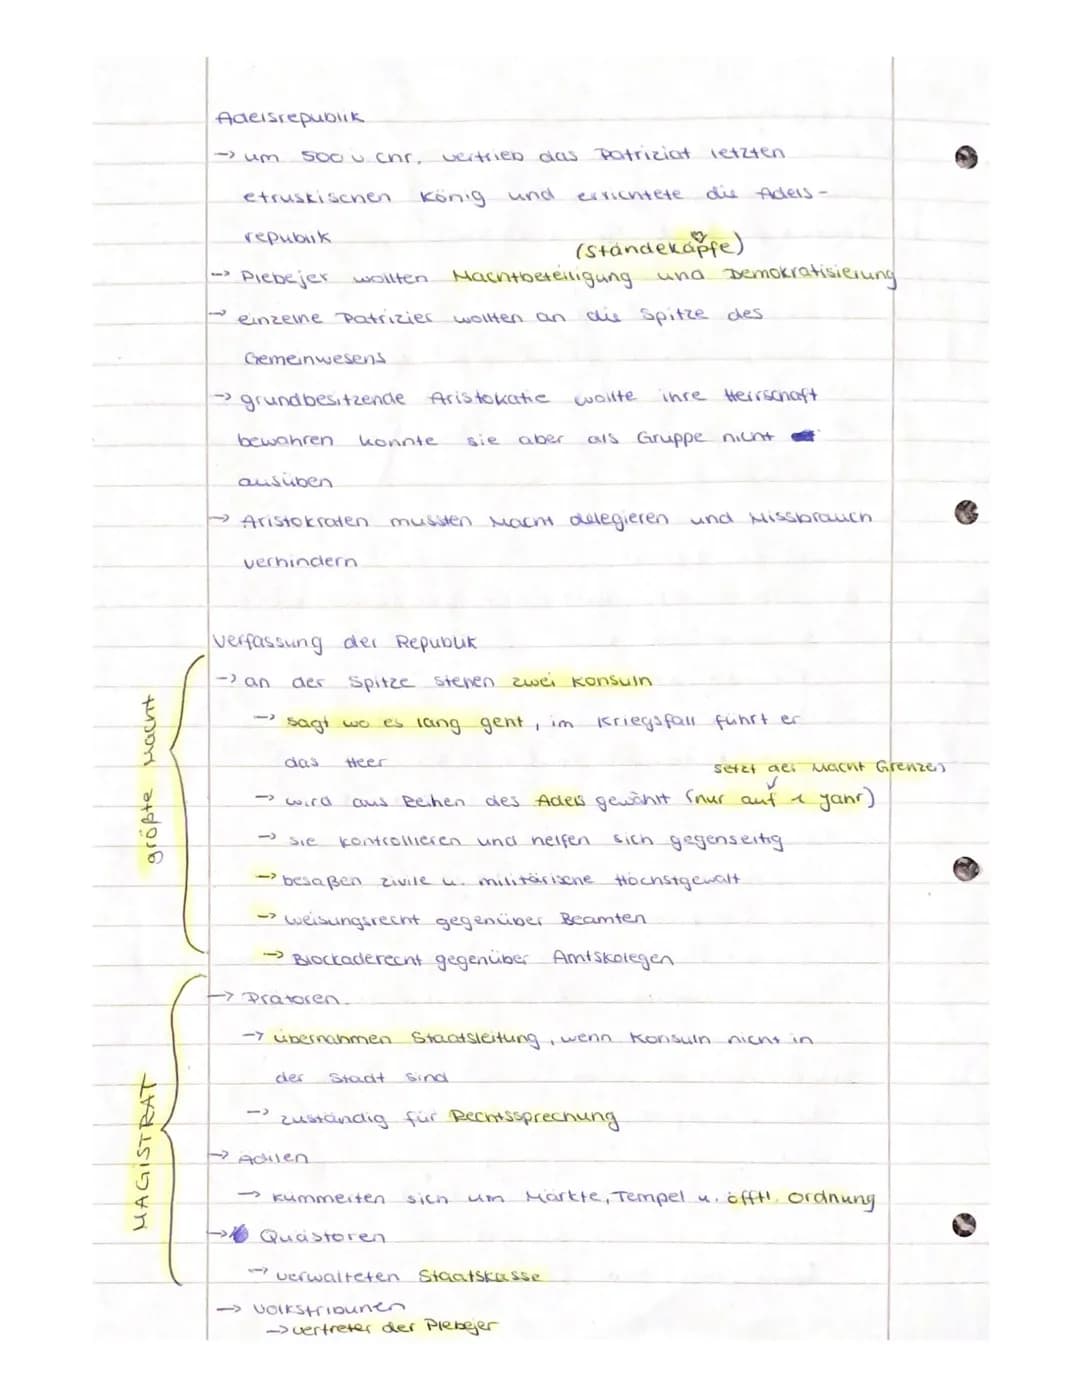 Adelsrepublik
→ um 500 v. Chr. vertrieb das Patriziat letzten
etruskischen König und errichtete die Adels-
republik
(Ständekäpfe)
→ Plebejer wollten Machtbeteiligung und Demokratisierung
→ einzelne Patrizier wollten an die Spitze des
Gemeinwesens
→ grundbesitzende Aristokatie wollte ihre Herrschaft
bewahren konnte sie aber als Gruppe nicht
ausüben
→ Aristokraten mussten Macht delegieren und Missbrauch
verhindern
Verfassung der Republik
größte Macht
→ an der Spitze stehen zwei Konsuln
→ sagt wo es lang geht, im Kriegsfall führt er
das Heer
setzt der Macht Grenzen
→ wird aus Reihen des Adels gewählt (nur auf 1 Jahr)
→ sie kontrollieren und helfen sich gegenseitig
→ besaßen zivile u. militärische Höchstgewalt
→ Weisungsrecht gegenüber Beamten
→ Blockaderecht gegenüber Amtskolegen
MAGISTRAT
→ Prätoren
→ übernahmen Staatsleitung, wenn Konsuln nicht in
der Stadt sind
→ zuständig für Rechtssprechung
→ Ädilen
→ kümmerten sich um Märkte, Tempel u. öfftl. Ordnung
→ Quästoren
→ verwalteten Staatskasse
→ Volkstribunen
→ vertreter der Plebejer